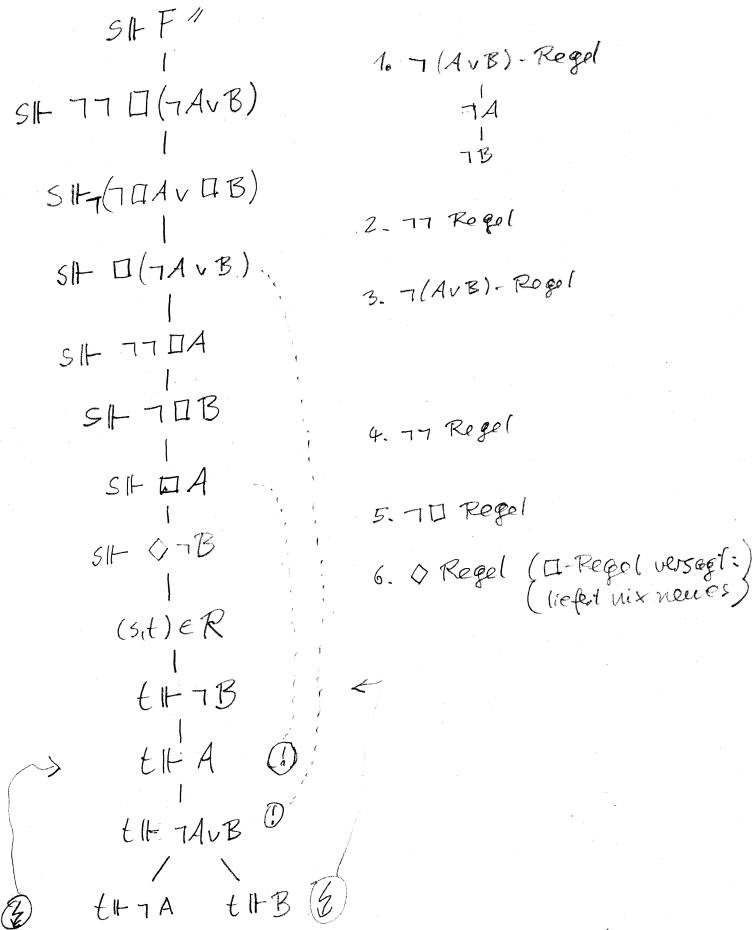 S⊩ F"
S⊩ ¬¬ □(¬A∨B)
S⊩¬(¬□A∨ □B)
S⊩ □(¬A∨B)
S⊩ ¬¬□A
S⊩ ¬□B
S⊩ □A
S⊩ ◇¬B
(s,t)∈R
t⊩¬B
t⊩ A (!)
t⊩ ¬A∨B (!)
t⊩¬A t⊩B
1. ¬(A∨B)-Regel
¬A
¬B
2. ¬¬ Regel
3. ¬(A∨B)-Regel
4. ¬¬ Regel
5. ¬□ Regel
6. ◇ Regel (□-Regel versagt:
liefert nix neues)